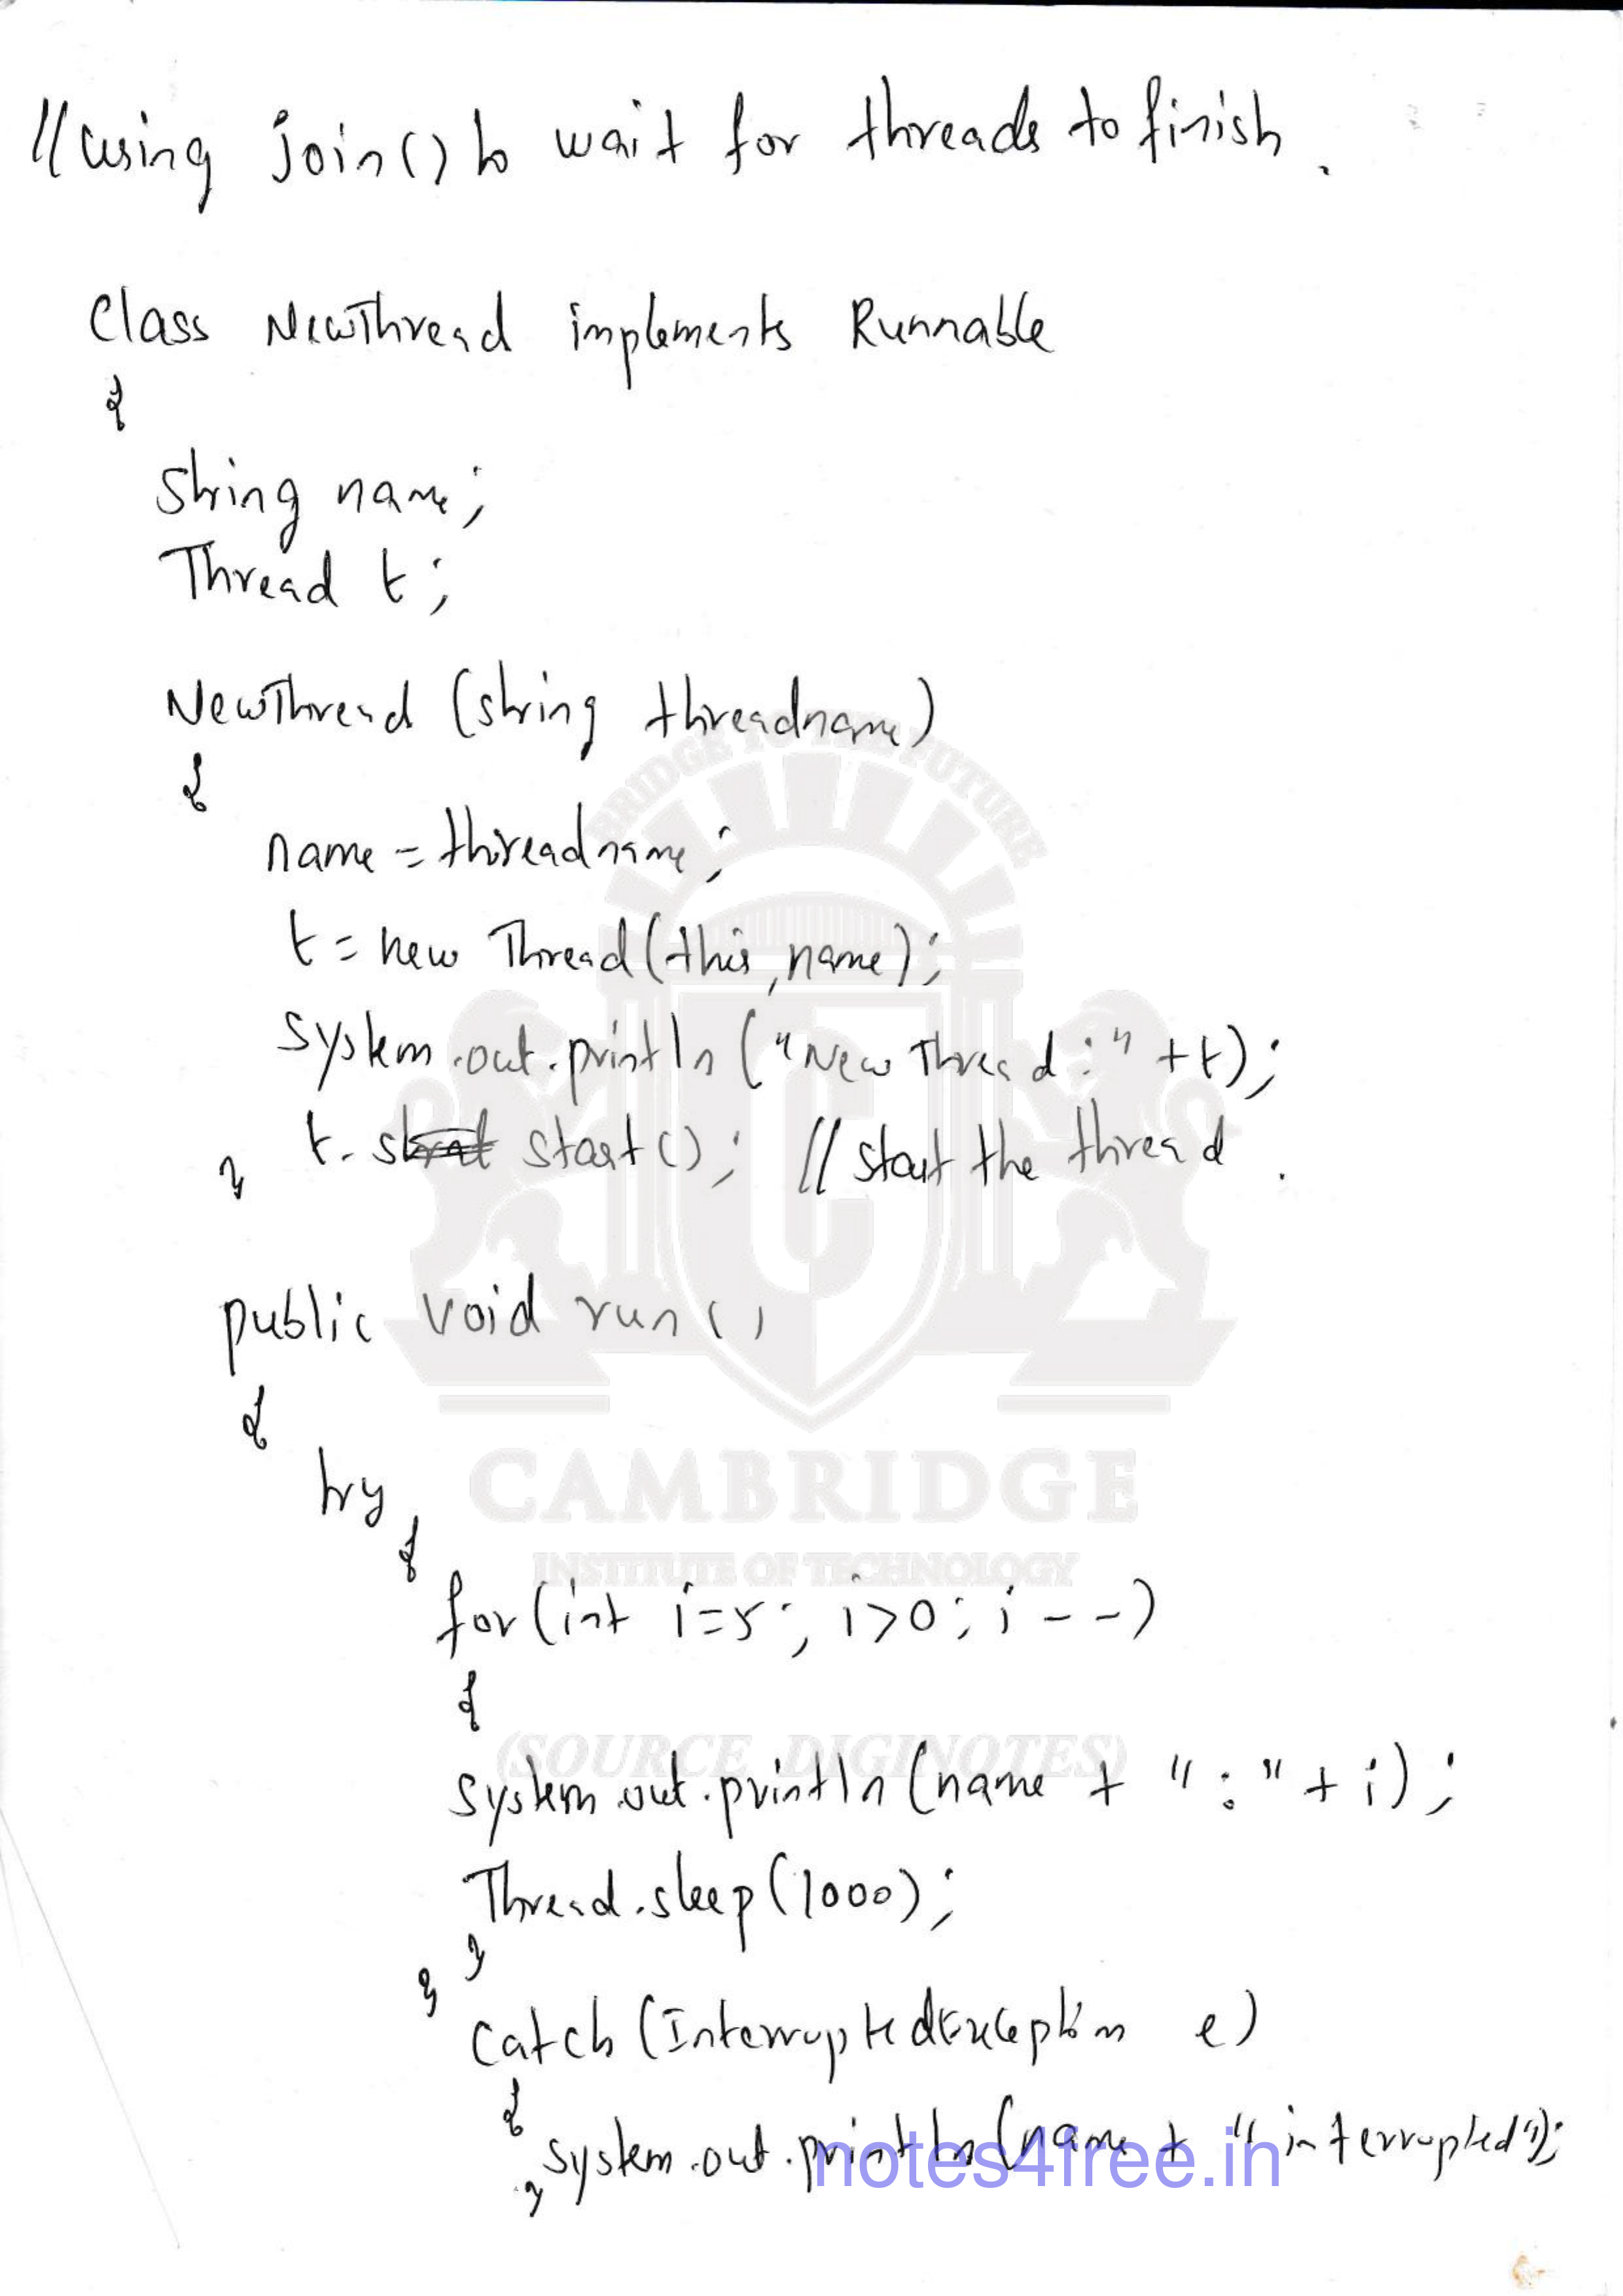 //using join() to wait for threads to finish.
Class NewThread implements Runnable
{
String name;
Thread t;
NewThread (string threadname)
{
name = threadname;
t = new Thread(this, name);
System.out.println ("New Thread:" +t);
t. start(); // start the thread.
}
public void run()
{
try
{
for(int i=5; i>0; i--)
{
System.out.println (name + ":" + i);
Thread.sleep(1000);
}
}
catch (InterruptedException e)
{
System.out.println (name + "interrupted");
}
BRIDGE TO THE FUTURE
CAMBRIDGE
INSTITUTE OF TECHNOLOGY
(SOURCE DIGINOTES)
notes4free.in